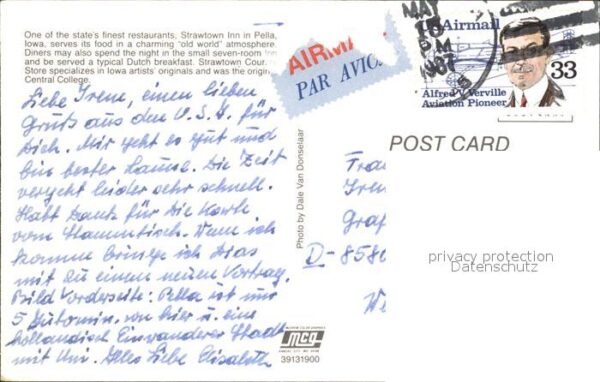 One of the state's finest restaurants, Strawtown Inn in Pella,
Iowa, serves its food in a charming "old world" atmosphere.
Diners may also spend the night in the small seven-room Inn
and be served a typical Dutch breakfast. Strawtown Cour
Store specializes in Iowa artists' originals and was the origin
Central College.
AIRMA
PAR AVIO
MAY
PM
1987
Airmail
33
Alfred V. Verville
Aviation Pioneer
POST CARD
Liebe Irene, einen lieben
Gruß aus den U.S.A. für
Dich. Mir geht es gut und
bin bester Laune. Die Zeit
vergeht leider sehr schnell.
Habt Dank für die Karte
vom Stammtisch. Wenn ich
komme bringe ich Dias
mit zu einem neuen Vortrag.
Bild Vorderseite: Pella ist nur
5 Automin. von hier u. eine
holländisch Einwanderer Stadt
mit Uni. Alles Liebe Elisabeth
Photo by Dale Van Donselaar
Frau
Iren
Grap
D-8580
We
privacy protection
Datenschutz
mcg
39131900